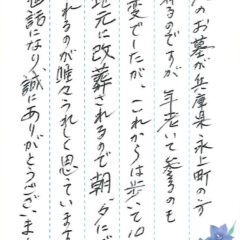 のお墓が兵庫県氷上町の方
有るのですが 年老いて参るのも
変でしたが、これからは歩いて10
地元に改葬されるので朝、夕にで
れるのが唯々うれしく思っています
世話になり、誠にありがとうございま